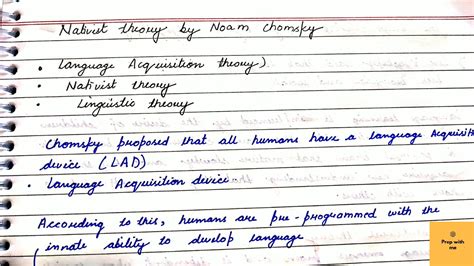 Nativist theory by Noam Chomsky
• Language Acquisition theory)
• Nativist theory
• Linguistic theory
Chomsky proposed that all humans have a language Acquisiti
device (LAD)
• Language Acquisition device
According to this, humans are pre-programmed with the
innate ability to develop language
Prep with
me